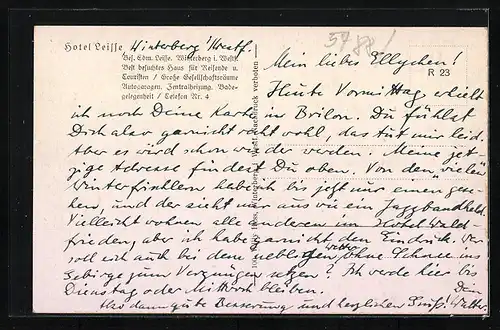 Hotel Leisse Winterberg i/Westf.
Bes. Edm. Leisse. Winterberg i. Westf.
Best besuchtes Haus für Reisende u.
Touristen / Große Gesellschaftsräume
Autogaragen. Zentralheizung. Bade-
gelegenheit / Telefon Nr. 4
5488!
R 23
Nachdruck verboten
Mein liebes Ellychen!
Heute Vormittag erhielt
ich noch Deine Karte in Brilon. Du fühlst
Dich aber garnicht recht wohl, das tut mir leid.
Aber es wird schon wieder werden. Meine jet-
zige Adresse findest Du oben. Von den vielen
Winterfrischlern habe ich bis jetzt nur einen gese-
hen, und der sieht nur aus wie ein Jazzbandheld.
Vielleicht wohnen alle anderen im Hotel Wald-
frieden, aber ich habe garnicht den Eindruck. Wer
soll sich auch bei dem wetter ohne Schnee ins
Gebirge zum Vergnügen setzen? Ich werde hier bis
Dienstag oder Mittwoch bleiben.
Also dann gute Besserung und herzlichen Gruß! Dein Walter